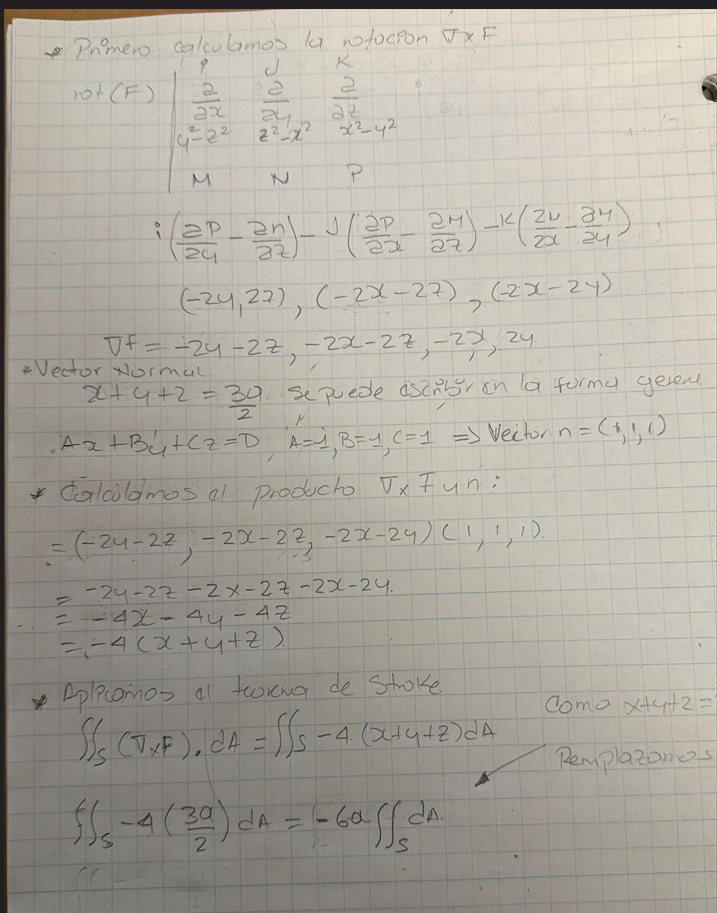 * Primero calculamos la rotacion ∇xF
i J K
rot(F) | ∂/∂x ∂/∂y ∂/∂z
y²-z² z²-x² x²-y²
M N P
i(∂P/∂y - ∂n/∂z) - J(∂P/∂x - ∂M/∂z) - K(∂N/∂x - ∂M/∂y)
(-2y,2z), (-2x-2z), (-2x-2y)
∇f = -2y-2z, -2x-2z, -2x, 2y
*Vector Normal
x+y+z = 3a/2 se puede escribir en la forma general
Ax+By+Cz=D, A=1, B=1, C=1 => Vector n = (1,1,1)
* Calculamos el producto ∇xF y n:
= (-2y-2z, -2x-2z, -2x-2y) (1, 1, 1).
= -2y-2z-2x-2z-2x-2y.
= -4x-4y-4z
= -4(x+y+z)
* Aplicamos el teorema de Stroke
Como x+y+z =
∬s (∇xF). dA = ∬s -4.(x+y+z)dA
Remplazamos
∬s -4(3a/2) dA = -6a ∬s dA.